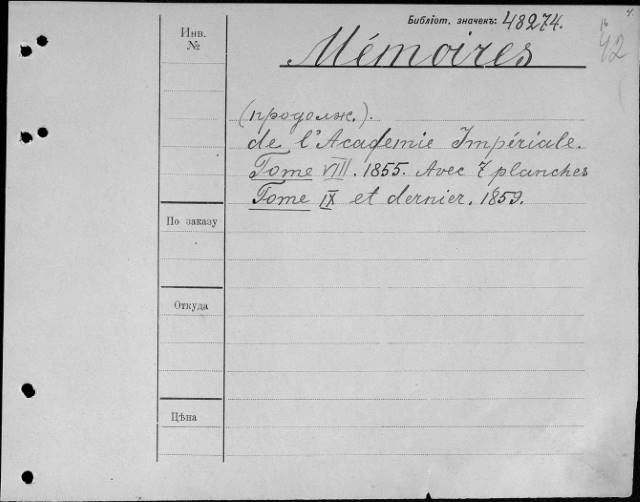 Библіот. значекъ: 48274.
Инв.
№
Mémoires
42
(продолж.).
de l'Academie Impériale.
Tome VIII. 1855. Avec 7 planches
Tome IX et dernier. 1859.
По заказу
Откуда
Цѣна